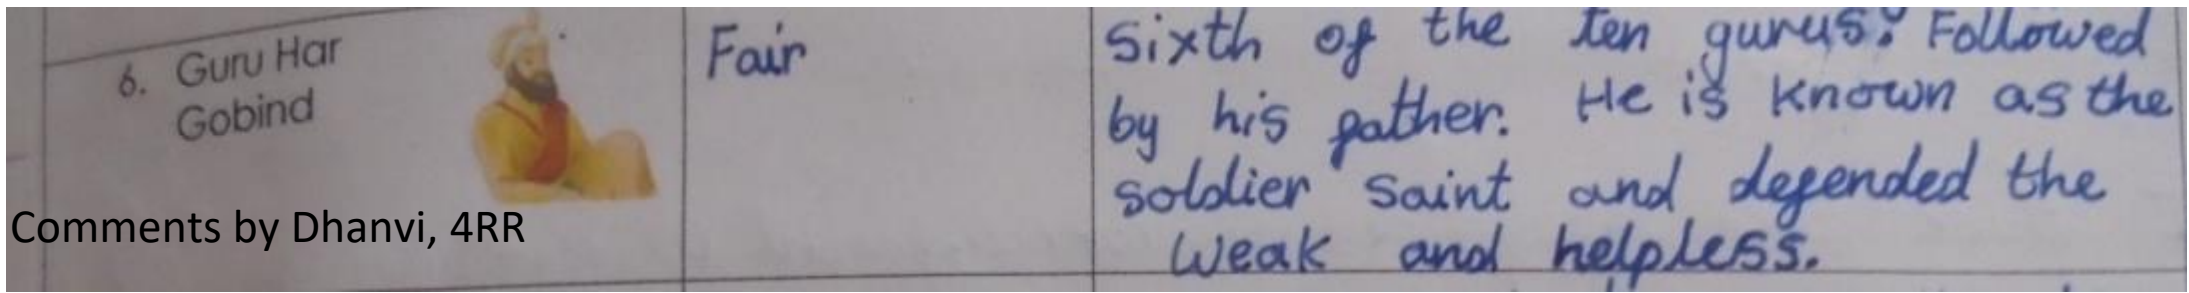 6. Guru Har
Gobind
Fair
Sixth of the ten gurus. Followed
by his father. He is known as the
soldier saint and defended the
weak and helpless.
Comments by Dhanvi, 4RR